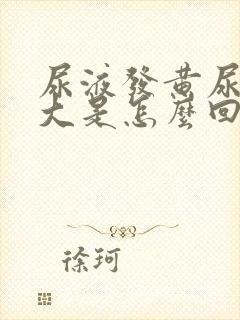 尿液發黃尿
大是怎麼回
徐珂